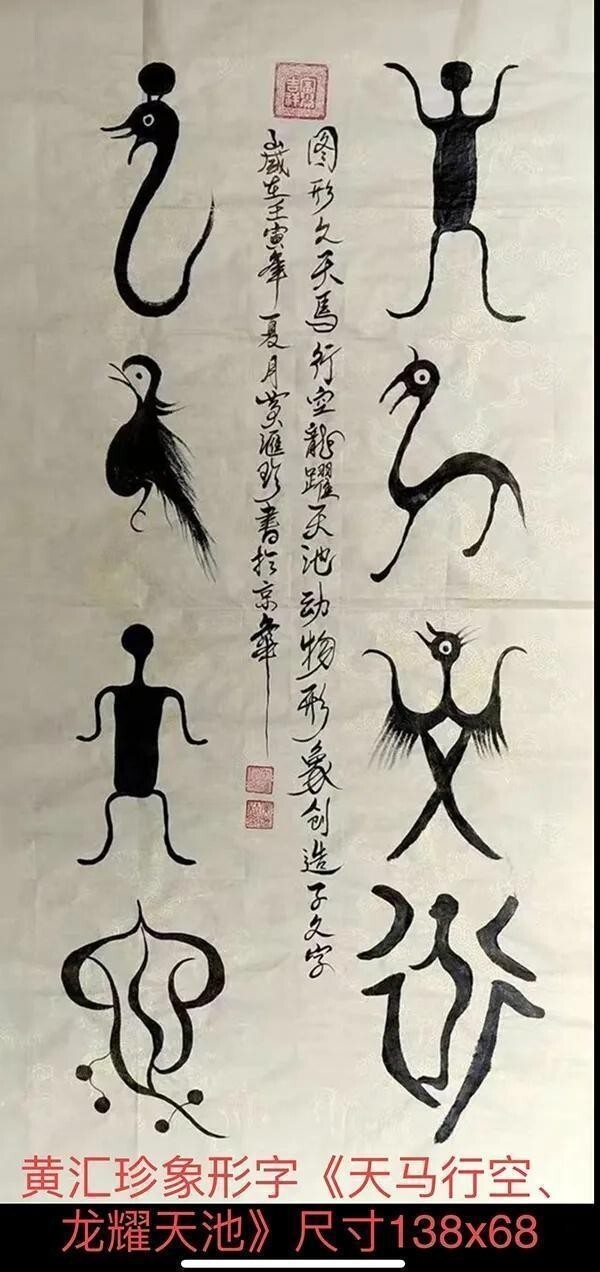 图形文天馬行空龍躍天池动物形象创造了文字
歲在壬寅年夏月黄滙珍書於京華
吉祥
黄汇珍象形字《天马行空、
龙耀天池》尺寸138x68